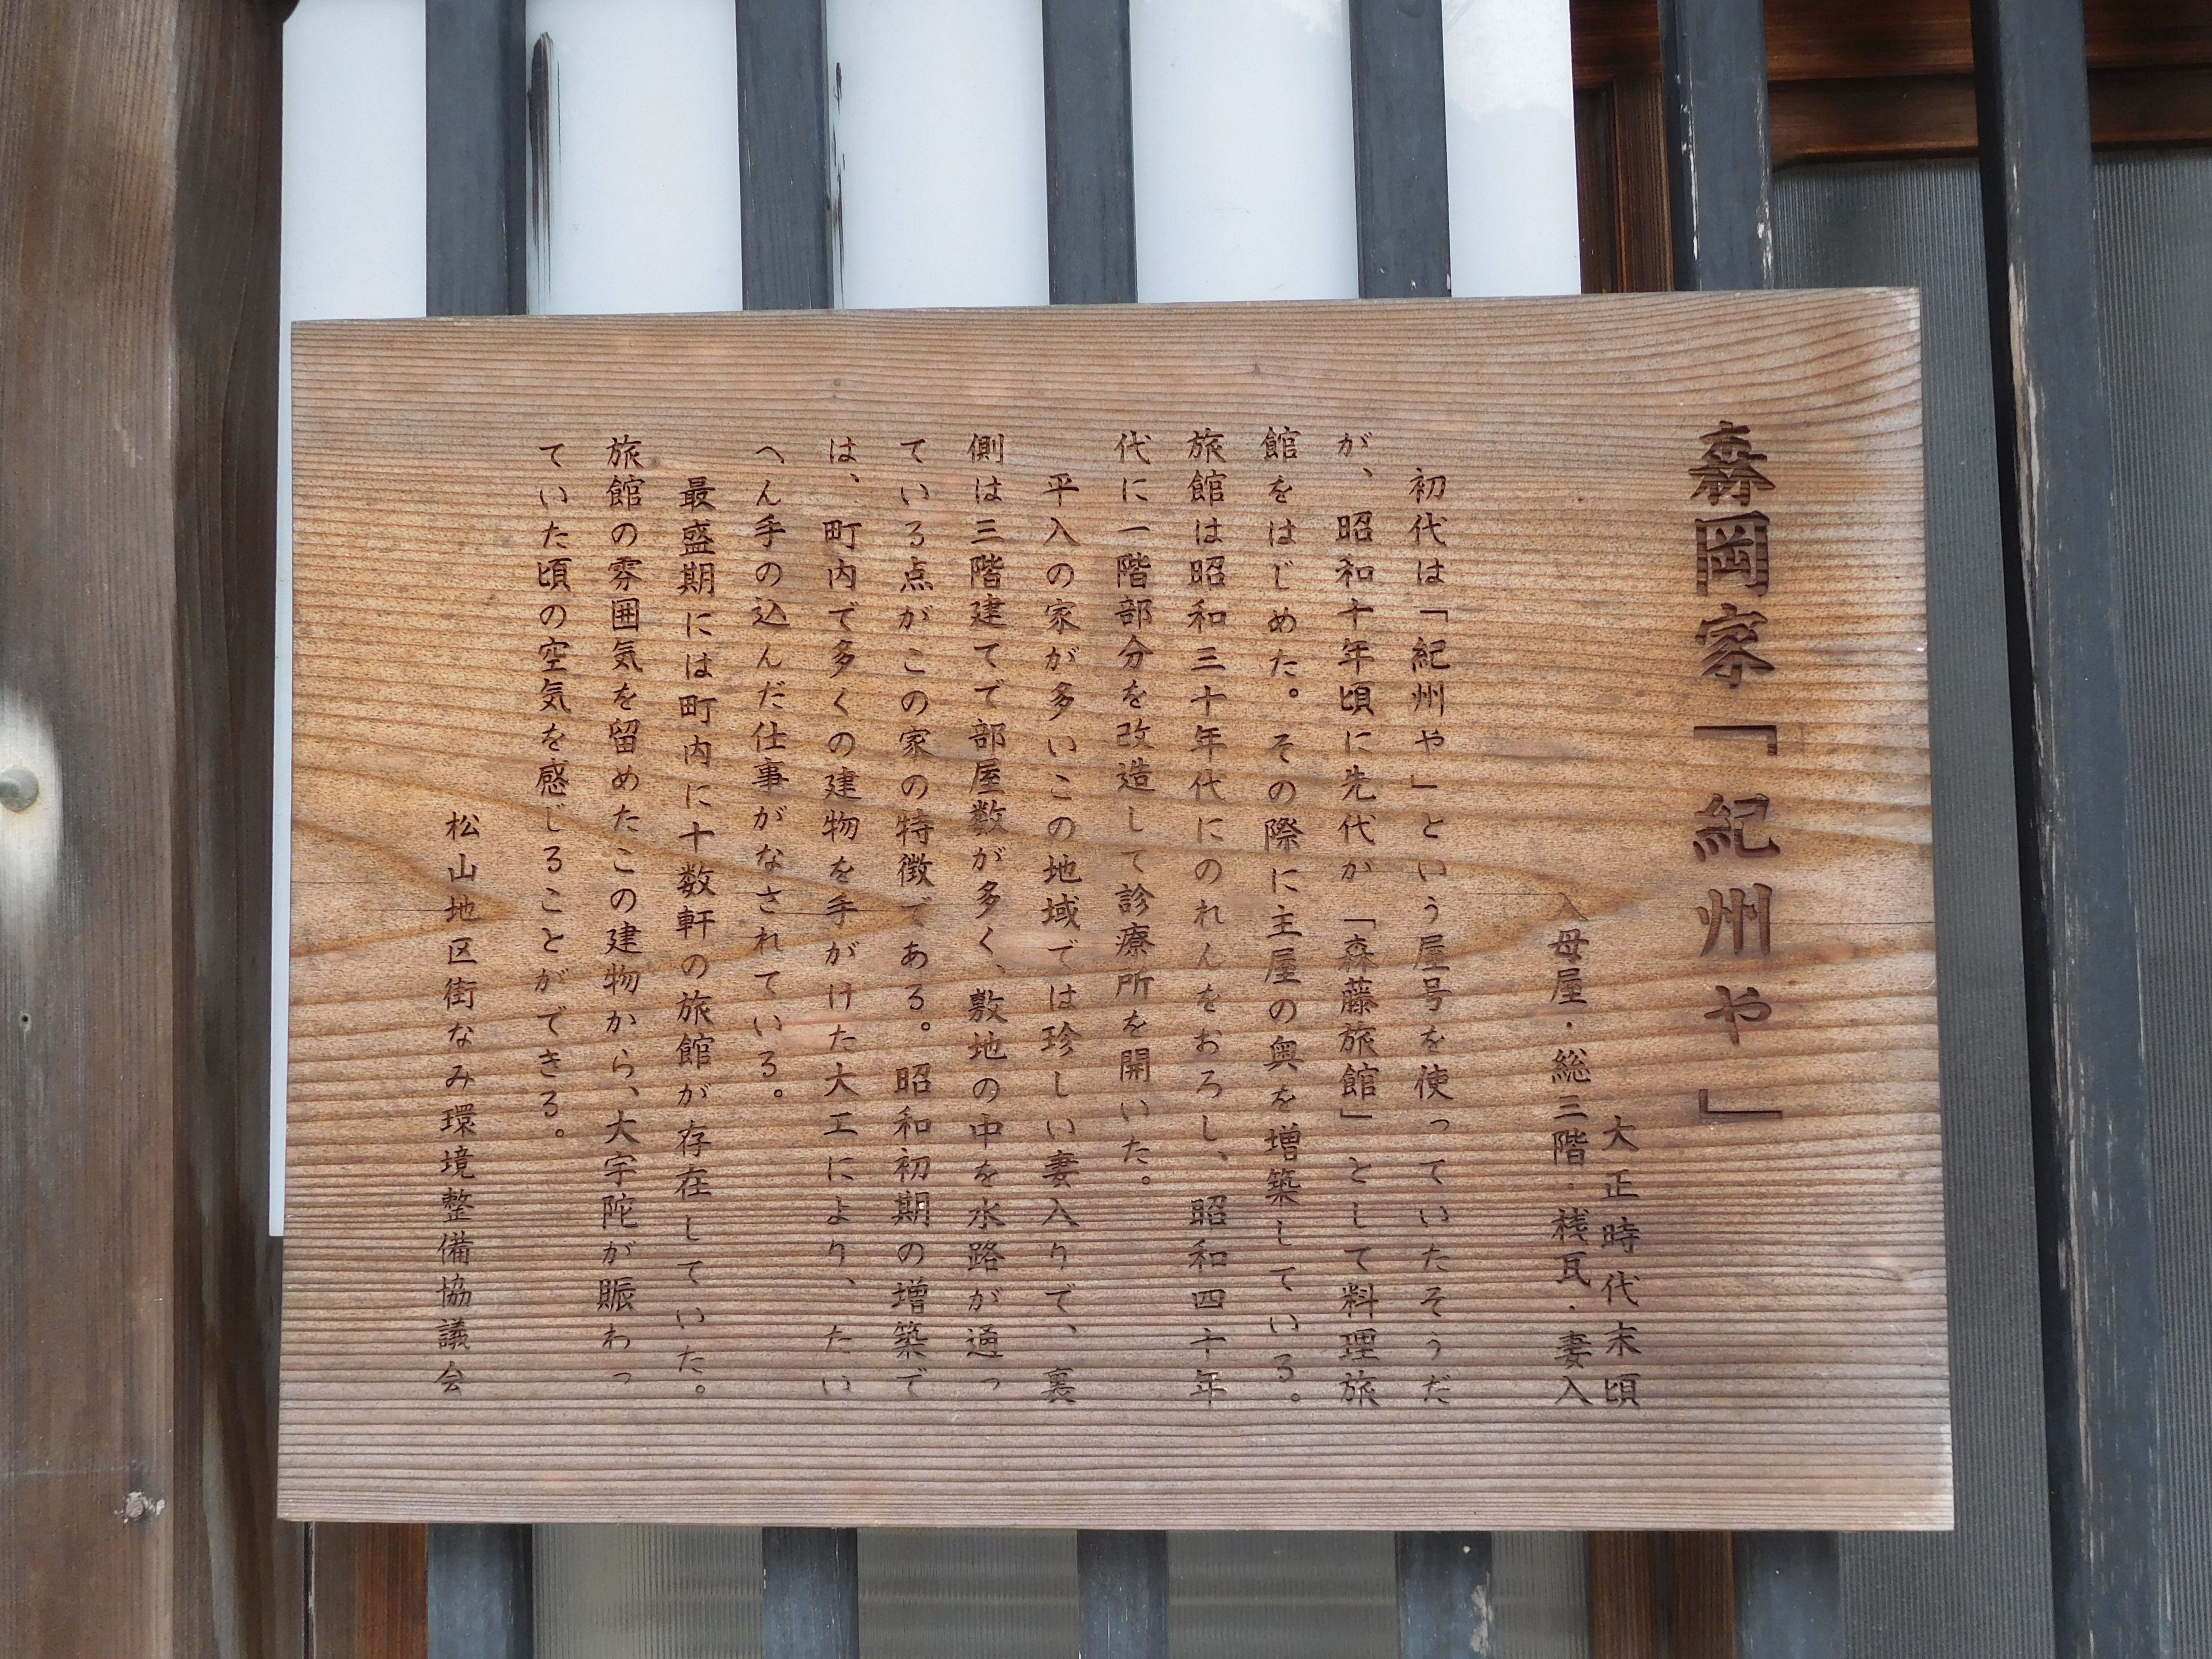 森岡家「紀州や」
大正時代末頃
入母屋・総三階・桟瓦・妻入
初代は「紀州や」という屋号を使っていたそうだ
が、昭和十年頃に先代が「森藤旅館」として料理旅
館をはじめた。その際に主屋の奥を増築している。
旅館は昭和三十年代にのれんをおろし、昭和四十年
代に一階部分を改造して診療所を開いた。
平入の家が多いこの地域では珍しい妻入りで、裏
側は三階建てで部屋数が多く、敷地の中を水路が通っ
ている点がこの家の特徴である。昭和初期の増築で
は、町内で多くの建物を手がけた大工により、たい
へん手の込んだ仕事がなされている。
最盛期には町内に十数軒の旅館が存在していた。
旅館の雰囲気を留めたこの建物から、大宇陀が賑わっ
ていた頃の空気を感じることができる。
松山地区街なみ環境整備協議会